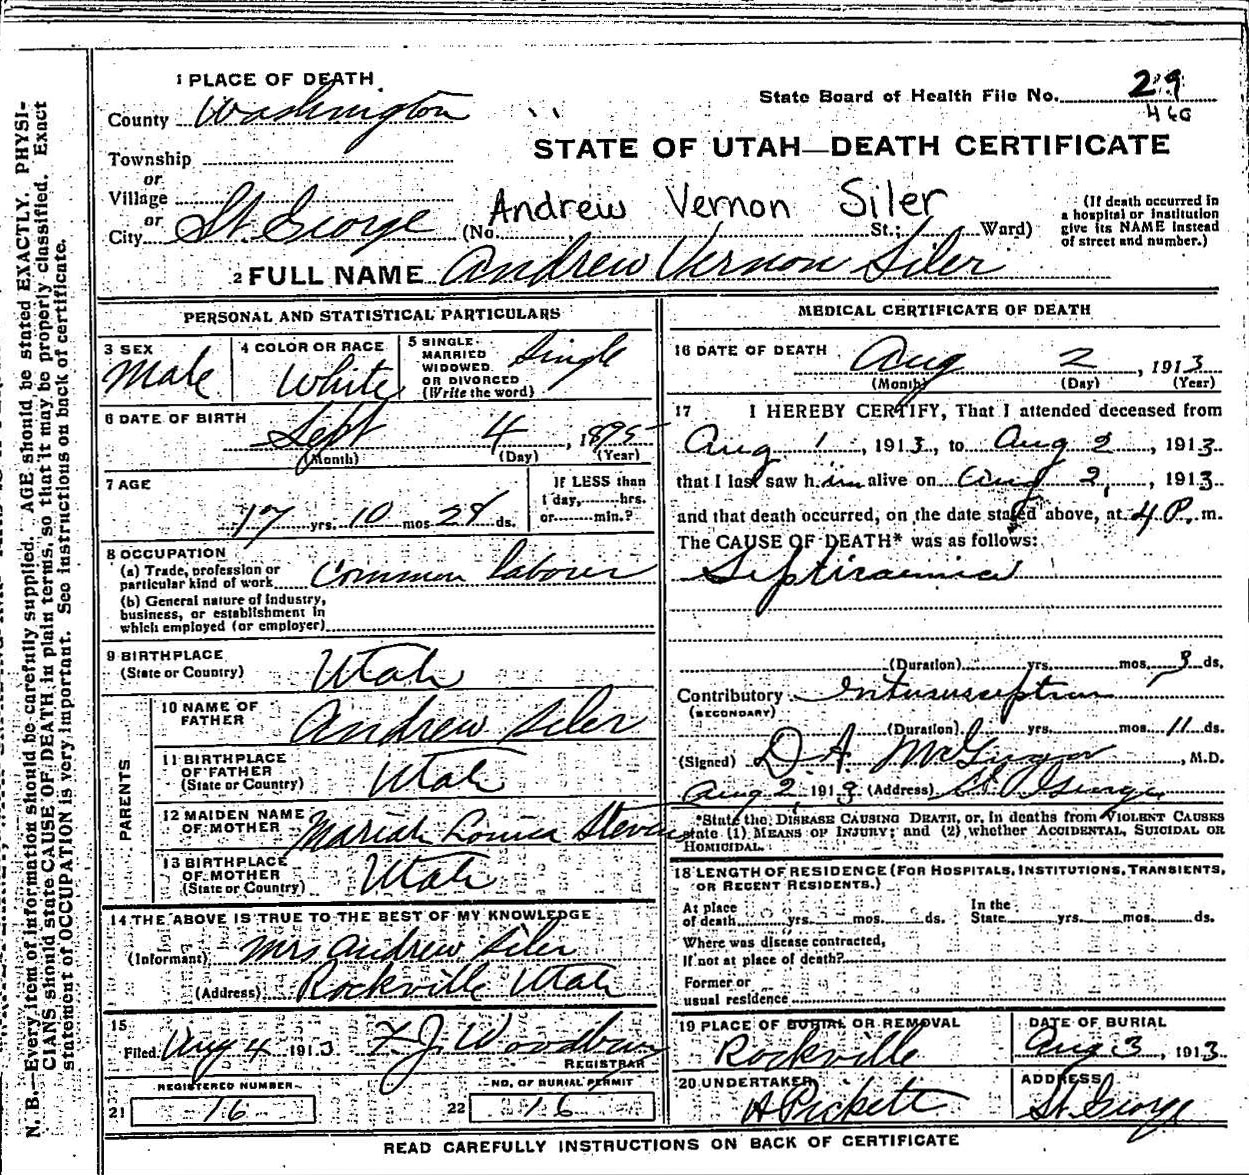 1 PLACE OF DEATH
County Washington
State Board of Health File No. 29
460
Township
or
Village
or
City St. George
STATE OF UTAH—DEATH CERTIFICATE
Andrew Vernon Siler
(No. St.; Ward)
(If death occurred in
a hospital or institution
give its NAME instead
of street and number.)
2 FULL NAME Andrew Vernon Siler
PERSONAL AND STATISTICAL PARTICULARS
3 SEX
Male
4 COLOR OR RACE
White
5 SINGLE
MARRIED
WIDOWED
OR DIVORCED
(Write the word)
Single
6 DATE OF BIRTH
Sept 4, 1895
(Month) (Day) (Year)
7 AGE
17 yrs. 10 mos. 28 ds.
If LESS than
1 day, hrs.
or min.?
8 OCCUPATION
(a) Trade, profession or
particular kind of work Common laborer
(b) General nature of Industry,
business, or establishment in
which employed (or employer)
9 BIRTHPLACE
(State or Country) Utah
PARENTS
10 NAME OF
FATHER Andrew Siler
11 BIRTHPLACE
OF FATHER
(State or Country) Utah
12 MAIDEN NAME
OF MOTHER Mariah Louisa Stevens
13 BIRTHPLACE
OF MOTHER
(State or Country) Utah
14 THE ABOVE IS TRUE TO THE BEST OF MY KNOWLEDGE
(Informant) Mrs Andrew Siler
(Address) Rockville Utah
15
Filed Aug 4 1913 F J Woodbury
REGISTRAR
REGISTERED NUMBER
21 16
NO. OF BURIAL PERMIT
22 16
MEDICAL CERTIFICATE OF DEATH
16 DATE OF DEATH Aug 2, 1913
(Month) (Day) (Year)
17 I HEREBY CERTIFY, That I attended deceased from
Aug 1, 1913, to Aug 2, 1913.
that I last saw him alive on Aug 2, 1913
and that death occurred, on the date stated above, at 4 P. m.
The CAUSE OF DEATH* was as follows:
Septicaemia
(Duration) yrs. mos. 3 ds.
Contributory Intususception
(SECONDARY)
(Duration) yrs. mos. 11 ds.
(Signed) D. A. McGregor, M.D.
Aug 2, 1913 (Address) St. George
*State the DISEASE CAUSING DEATH, or, in deaths from VIOLENT CAUSES
state (1) MEANS OF INJURY; and (2) whether ACCIDENTAL, SUICIDAL OR
HOMICIDAL.
18 LENGTH OF RESIDENCE (FOR HOSPITALS, INSTITUTIONS, TRANSIENTS,
OR RECENT RESIDENTS.)
At place
of death yrs. mos. ds.
In the
State yrs. mos. ds.
Where was disease contracted,
If not at place of death?
Former or
usual residence
19 PLACE OF BURIAL OR REMOVAL
Rockville
DATE OF BURIAL
Aug 3, 1913
20 UNDERTAKER
A Pickett
ADDRESS
St. George
READ CAREFULLY INSTRUCTIONS ON BACK OF CERTIFICATE
N. B.—Every item of information should be carefully supplied. AGE should be stated EXACTLY. PHYSI-
CIANS should state CAUSE OF DEATH in plain terms, so that it may be properly classified. Exact
statement of OCCUPATION is very important. See instructions on back of certificate.